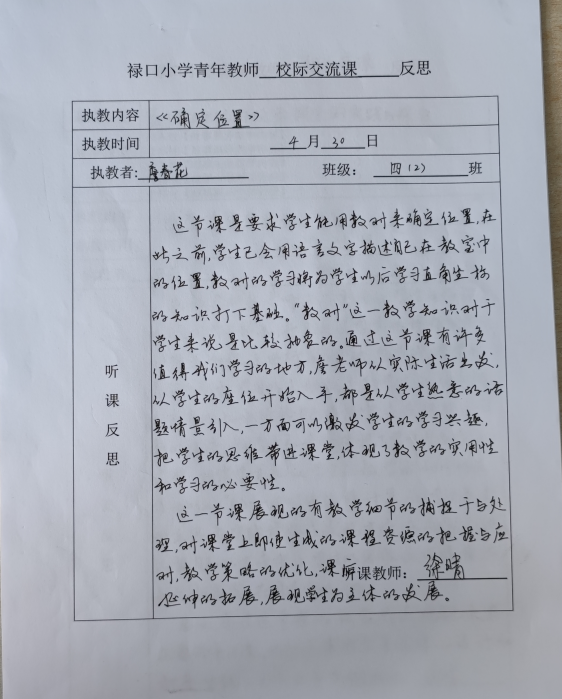 禄口小学青年教师 校际交流课 反思
执教内容 《确定位置》
执教时间 4 月 30 日
执教者: 唐春花 班级: 四(2) 班
听课反思
这节课是要求学生能用数对来确定位置,在
此之前,学生已会用语言文字描述自己在教室中
的位置,数对的学习将为学生以后学习直角坐标
的知识打下基础。“数对”这一数学知识对于
学生来说是比较抽象的。通过这节课有许多
值得我们学习的地方,唐老师从实际生活出发,
从学生的座位开始入手,都是从学生熟悉的话
题情景引入,一方面可以激发学生的学习兴趣,
把学生的思维带进课堂,体现了数学的实用性
和学习的必要性。
这一节课展现的有教学细节的捕捉于与处
理,对课堂上即使生成的课程资源的把握与应
对,教学策略的优化,课后 听课教师: 徐晴
延伸的拓展,展现学生为主体的发展。